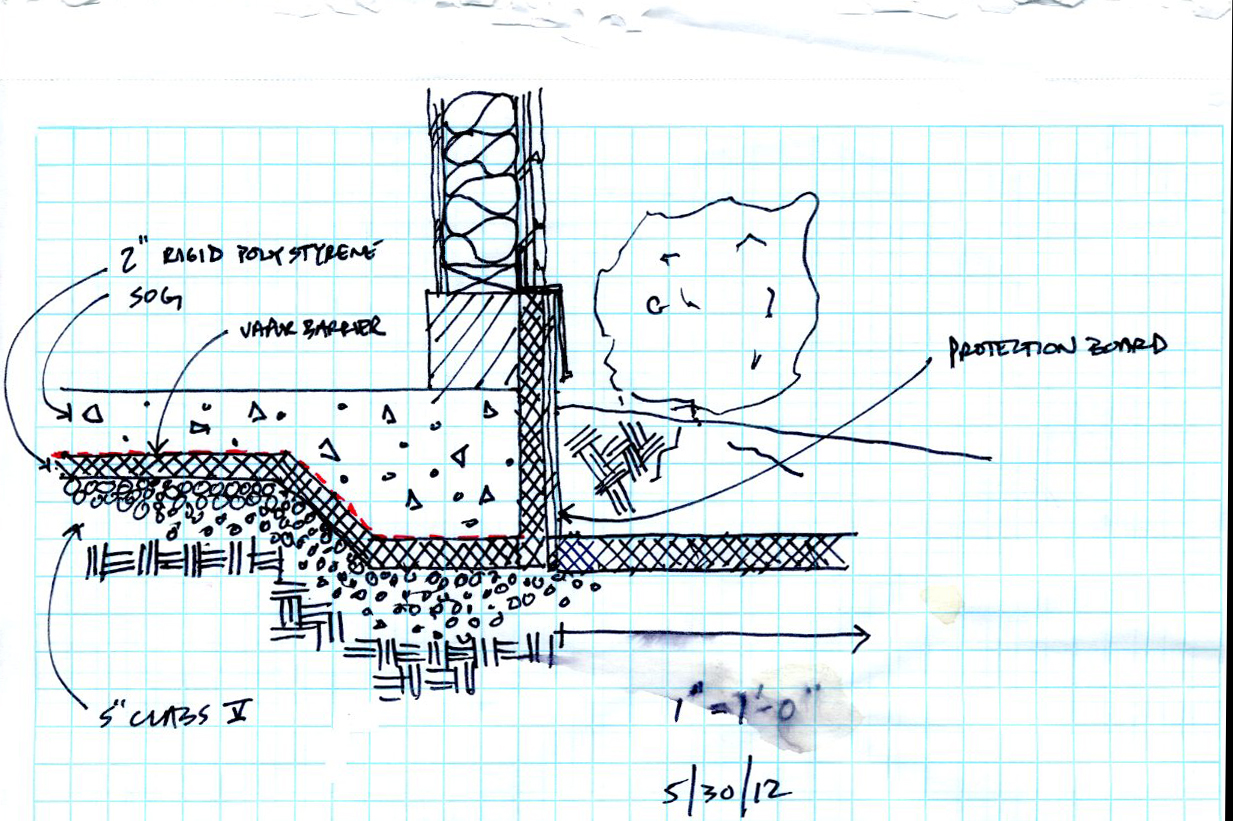 2" RIGID POLYSTYRENE
SOG
VAPOR BARRIER
PROTECTION BOARD
5" CLASS V
1" = 1'-0"
5/30/12